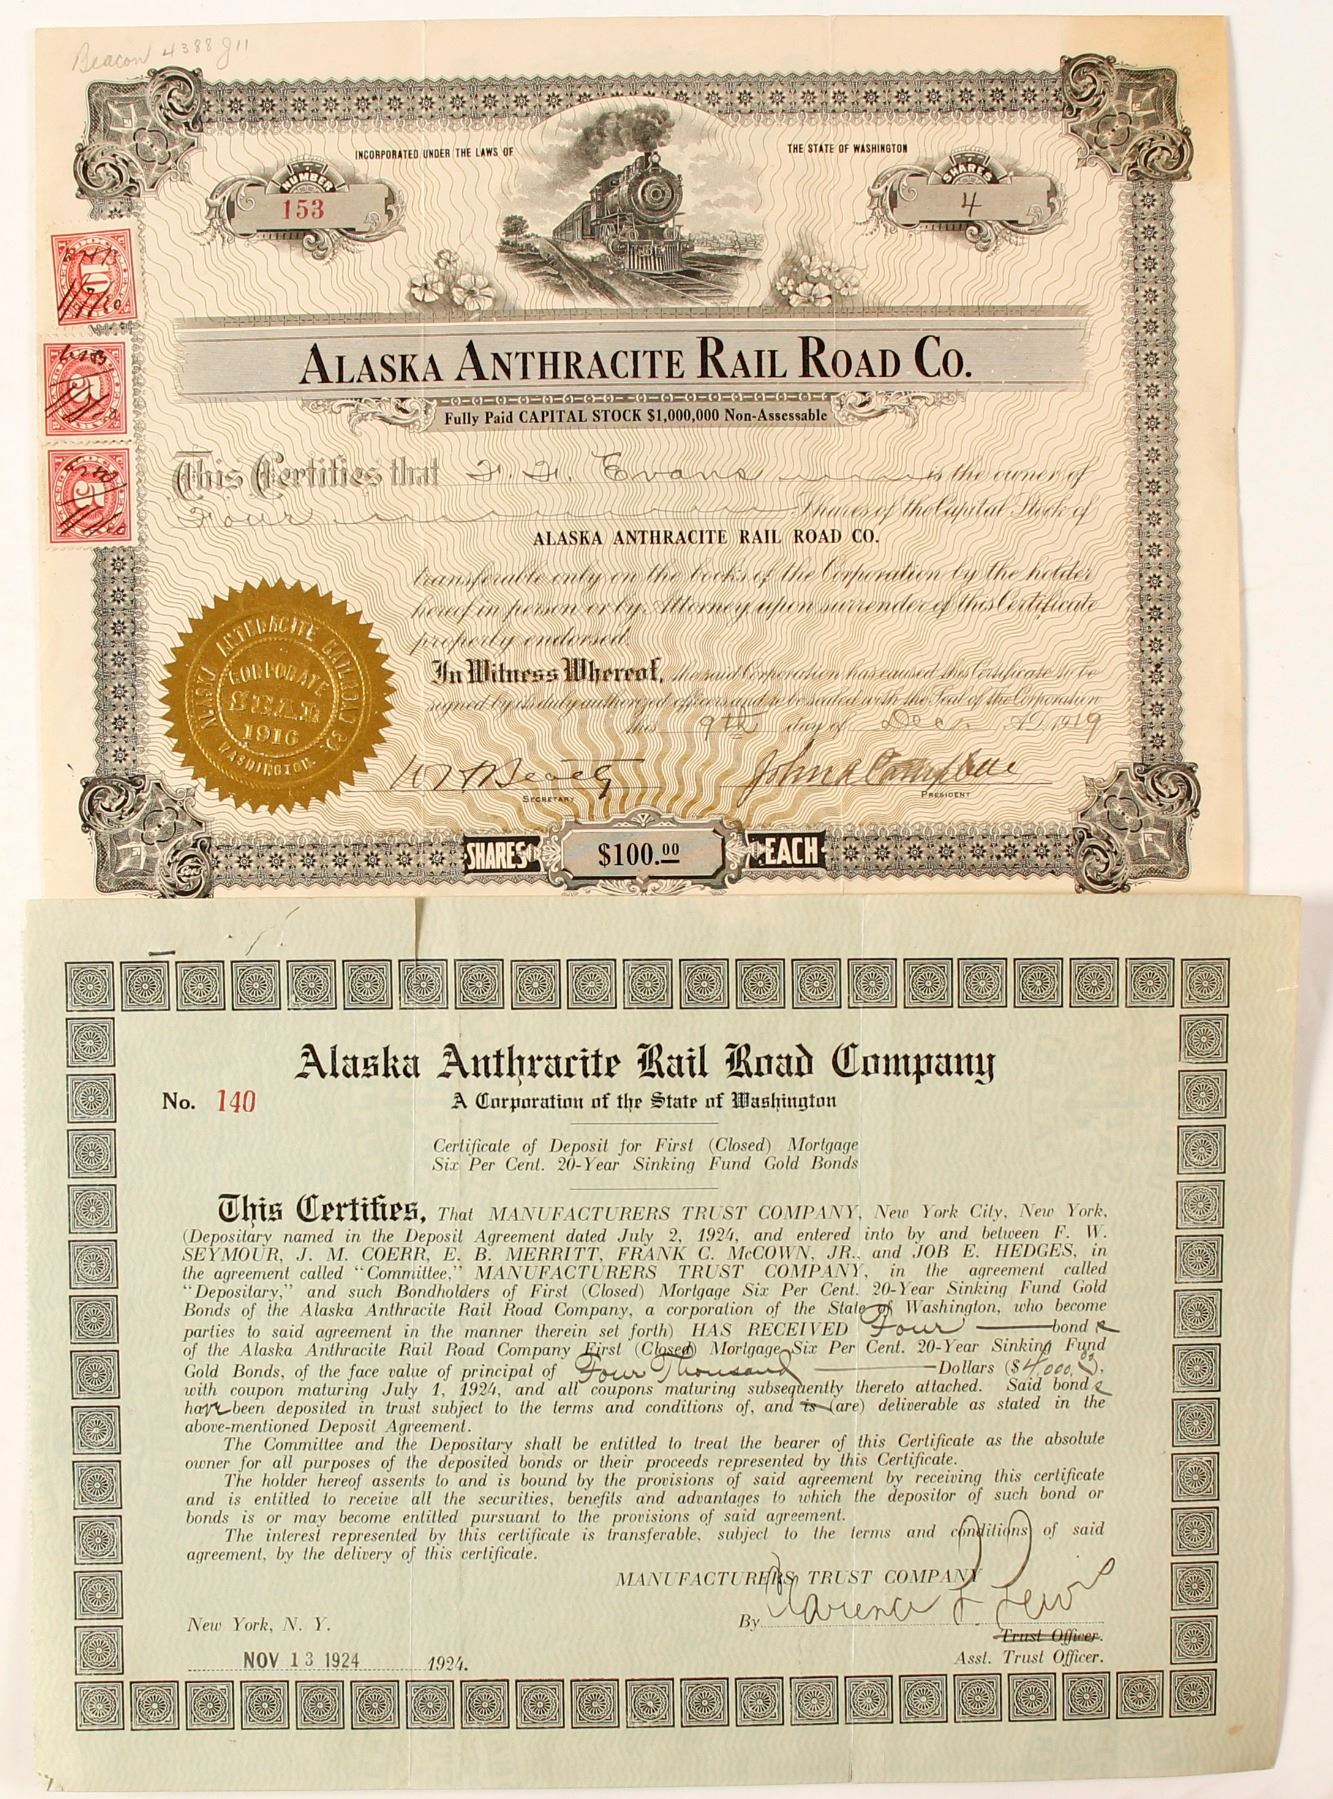 Beacon 4388 J11
INCORPORATED UNDER THE LAWS OF THE STATE OF WASHINGTON
NUMBER SHARES
153 4
10
5
5
ALASKA ANTHRACITE RAIL ROAD CO.
Fully Paid CAPITAL STOCK $1,000,000 Non-Assessable
This Certifies that F. F. Evans is the owner of
Four Shares of the Capital Stock of
ALASKA ANTHRACITE RAIL ROAD CO.
transferable only on the books of the Corporation by the holder
hereof in person or by Attorney upon surrender of this Certificate
properly endorsed.
In Witness Whereof, the said Corporation has caused this Certificate to be
signed by its duly authorized officers and to be sealed with the Seal of the Corporation
this 9th day of Dec. A.D. 1919
ALASKA ANTHRACITE RAILROAD CO.
CORPORATE
SEAL
1916
WASHINGTON.
SECRETARY PRESIDENT
SHARES $100.00 EACH
Alaska Anthracite Rail Road Company
No. 140 A Corporation of the State of Washington
Certificate of Deposit for First (Closed) Mortgage
Six Per Cent. 20-Year Sinking Fund Gold Bonds
This Certifies, That MANUFACTURERS TRUST COMPANY, New York City, New York,
(Depositary named in the Deposit Agreement dated July 2, 1924, and entered into by and between F. W.
SEYMOUR, J. M. COERR, E. B. MERRITT, FRANK C. McCOWN, JR., and JOB E. HEDGES, in
the agreement called "Committee," MANUFACTURERS TRUST COMPANY, in the agreement called
"Depositary," and such Bondholders of First (Closed) Mortgage Six Per Cent. 20-Year Sinking Fund Gold
Bonds of the Alaska Anthracite Rail Road Company, a corporation of the State of Washington, who become
parties to said agreement in the manner therein set forth) HAS RECEIVED Four bond s
of the Alaska Anthracite Rail Road Company First (Closed) Mortgage Six Per Cent. 20-Year Sinking Fund
Gold Bonds, of the face value of principal of Four Thousand Dollars ($4,000.00),
with coupon maturing July 1, 1924, and all coupons maturing subsequently thereto attached. Said bond s
have been deposited in trust subject to the terms and conditions of, and is (are) deliverable as stated in the
above-mentioned Deposit Agreement.
The Committee and the Depositary shall be entitled to treat the bearer of this Certificate as the absolute
owner for all purposes of the deposited bonds or their proceeds represented by this Certificate.
The holder hereof assents to and is bound by the provisions of said agreement by receiving this certificate
and is entitled to receive all the securities, benefits and advantages to which the depositor of such bond or
bonds is or may become entitled pursuant to the provisions of said agreement.
The interest represented by this certificate is transferable, subject to the terms and conditions of said
agreement, by the delivery of this certificate.
MANUFACTURERS TRUST COMPANY
New York, N. Y. By Clarence L Lewis
Trust Officer.
NOV 13 1924 1924. Asst. Trust Officer.